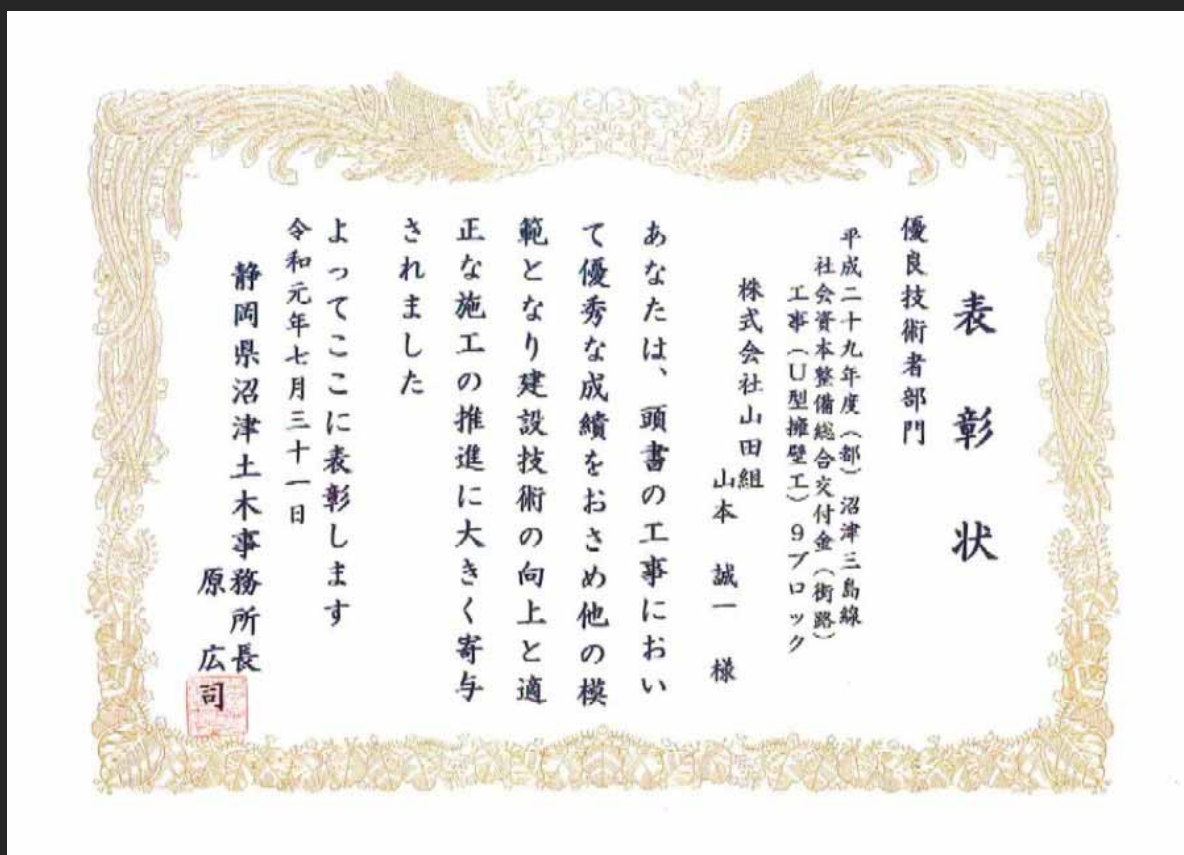 表彰状
優良技術者部門
平成二十九年度（都）沼津三島線
社会資本整備総合交付金（街路）
工事（U型擁壁工）9ブロック
株式会社山田組
山本 誠一 様
あなたは、頭書の工事におい
て優秀な成績をおさめ他の模
範となり建設技術の向上と適
正な施工の推進に大きく寄与
されました
よってここに表彰します
令和元年七月三十一日
静岡県沼津土木事務所長
原 広司